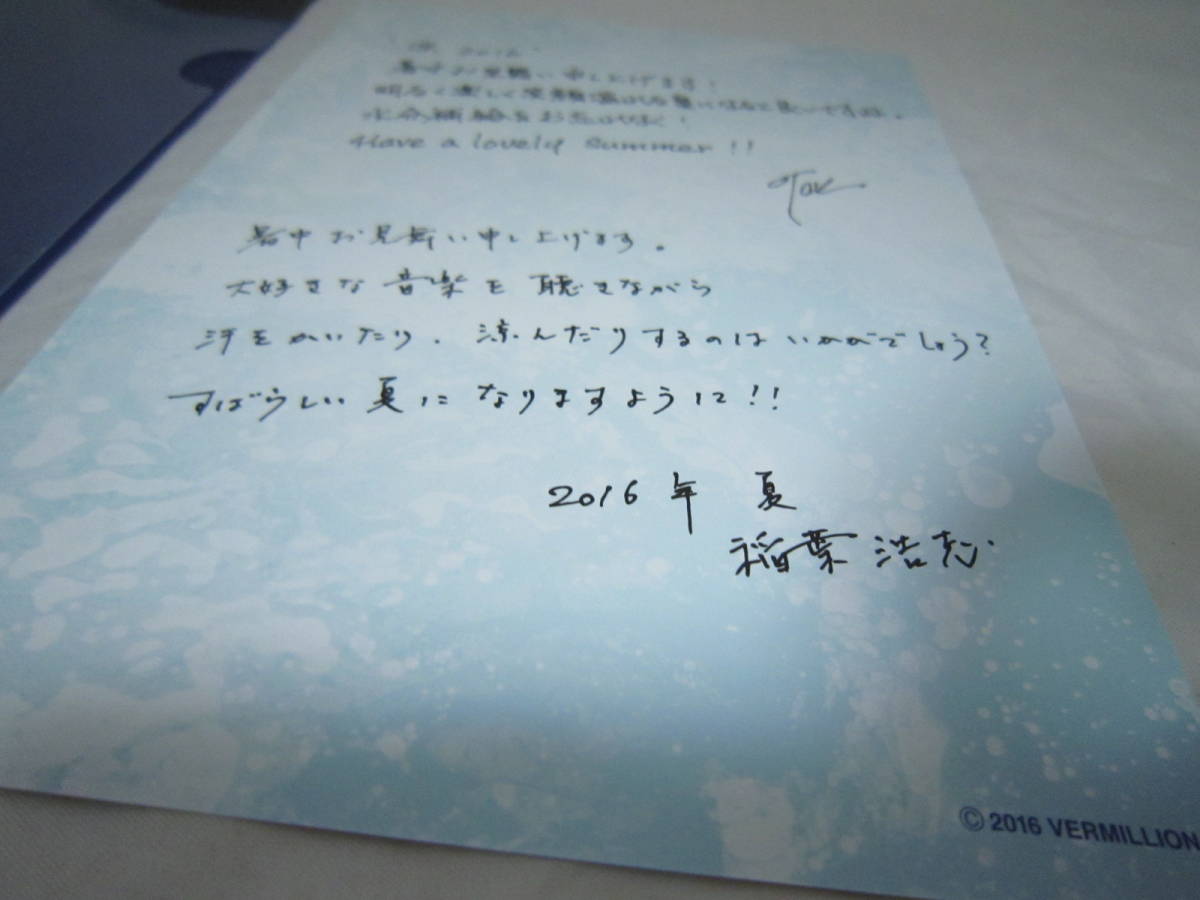 暑中お見舞い申し上げます!
明るく楽しく笑顔溢れる夏になると良いですね。
水分補給をお忘れなく!
Have a lovely summer!!
Tak
暑中お見舞い申し上げます。
大好きな音楽を聴きながら
汗をかいたり、涼んだりするのはいかがでしょう?
すばらしい夏になりますように!!
2016年 夏
稲葉浩志
© 2016 VERMILLION